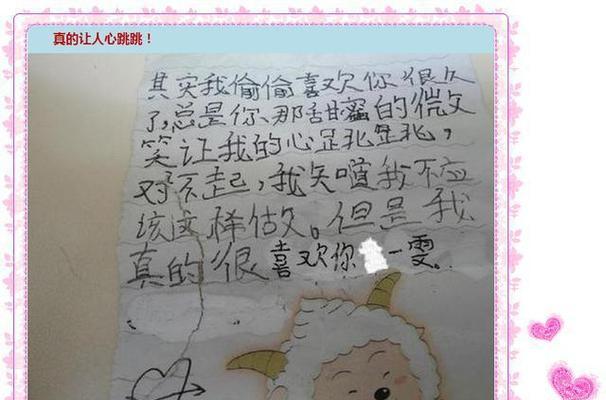 真的让人心跳跳！
其实我偷偷喜欢你很久
了，总是你那甜蜜的微
笑让我的心跳跳，
对不起，我知道我不应
该这样做。但是我
真的很喜欢你一雯。